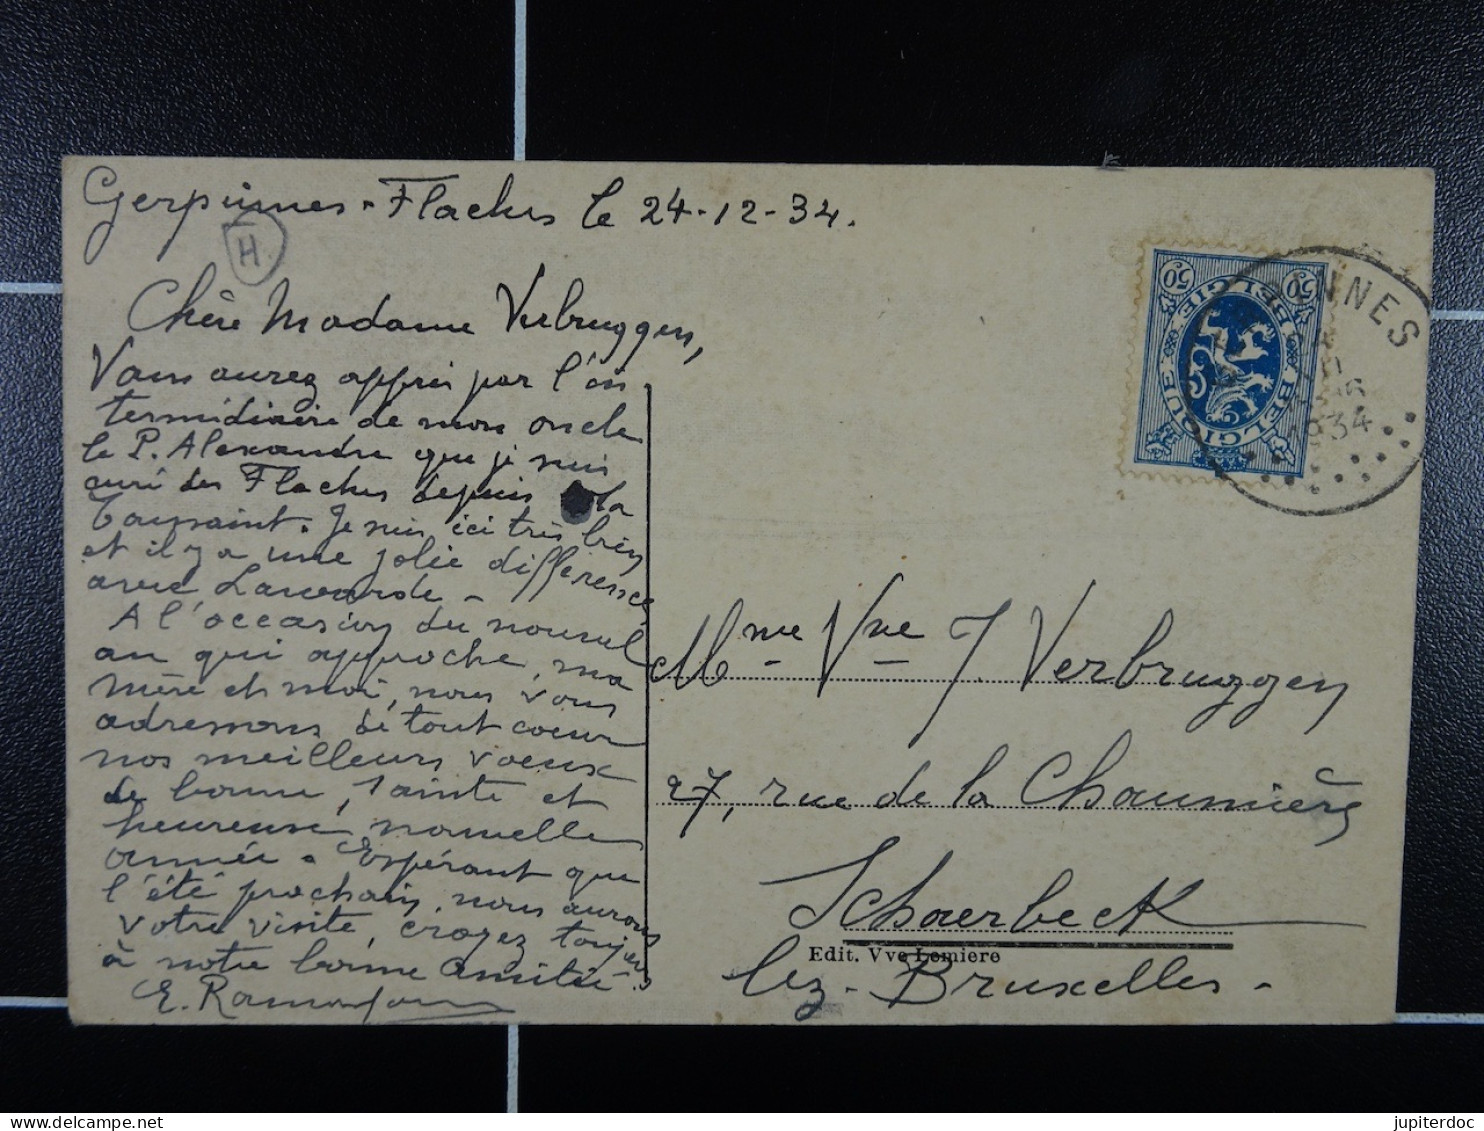 Gerpinnes-Flaches le 24-12-34.
H
Chère Madame Verbruggen,
Vous aurez appris par l'in
termédiaire de mon oncle
le P. Alexandre que je suis
curé des Flaches depuis la
Toussaint. Je suis ici très bien
et il y a une jolie différence
avec
A l'occasion du nouvel
an qui approche, ma
mère et moi, nous vous
adressons de tout coeur
nos meilleurs voeux
de bonne, sainte et
heureuse nouvelle
année. Espérant que
l'été prochain, nous aurons
votre visite, croyez toujours
à notre bonne amitié.
E.
50 50
BELGIE
BELGIQUE
NNES
1934
Mme Vve J. Verbruggen
27, rue de la Chaumière
Schaerbeck
Edit. Vve Lemiere
lez-Bruxelles-
jupiterdoc